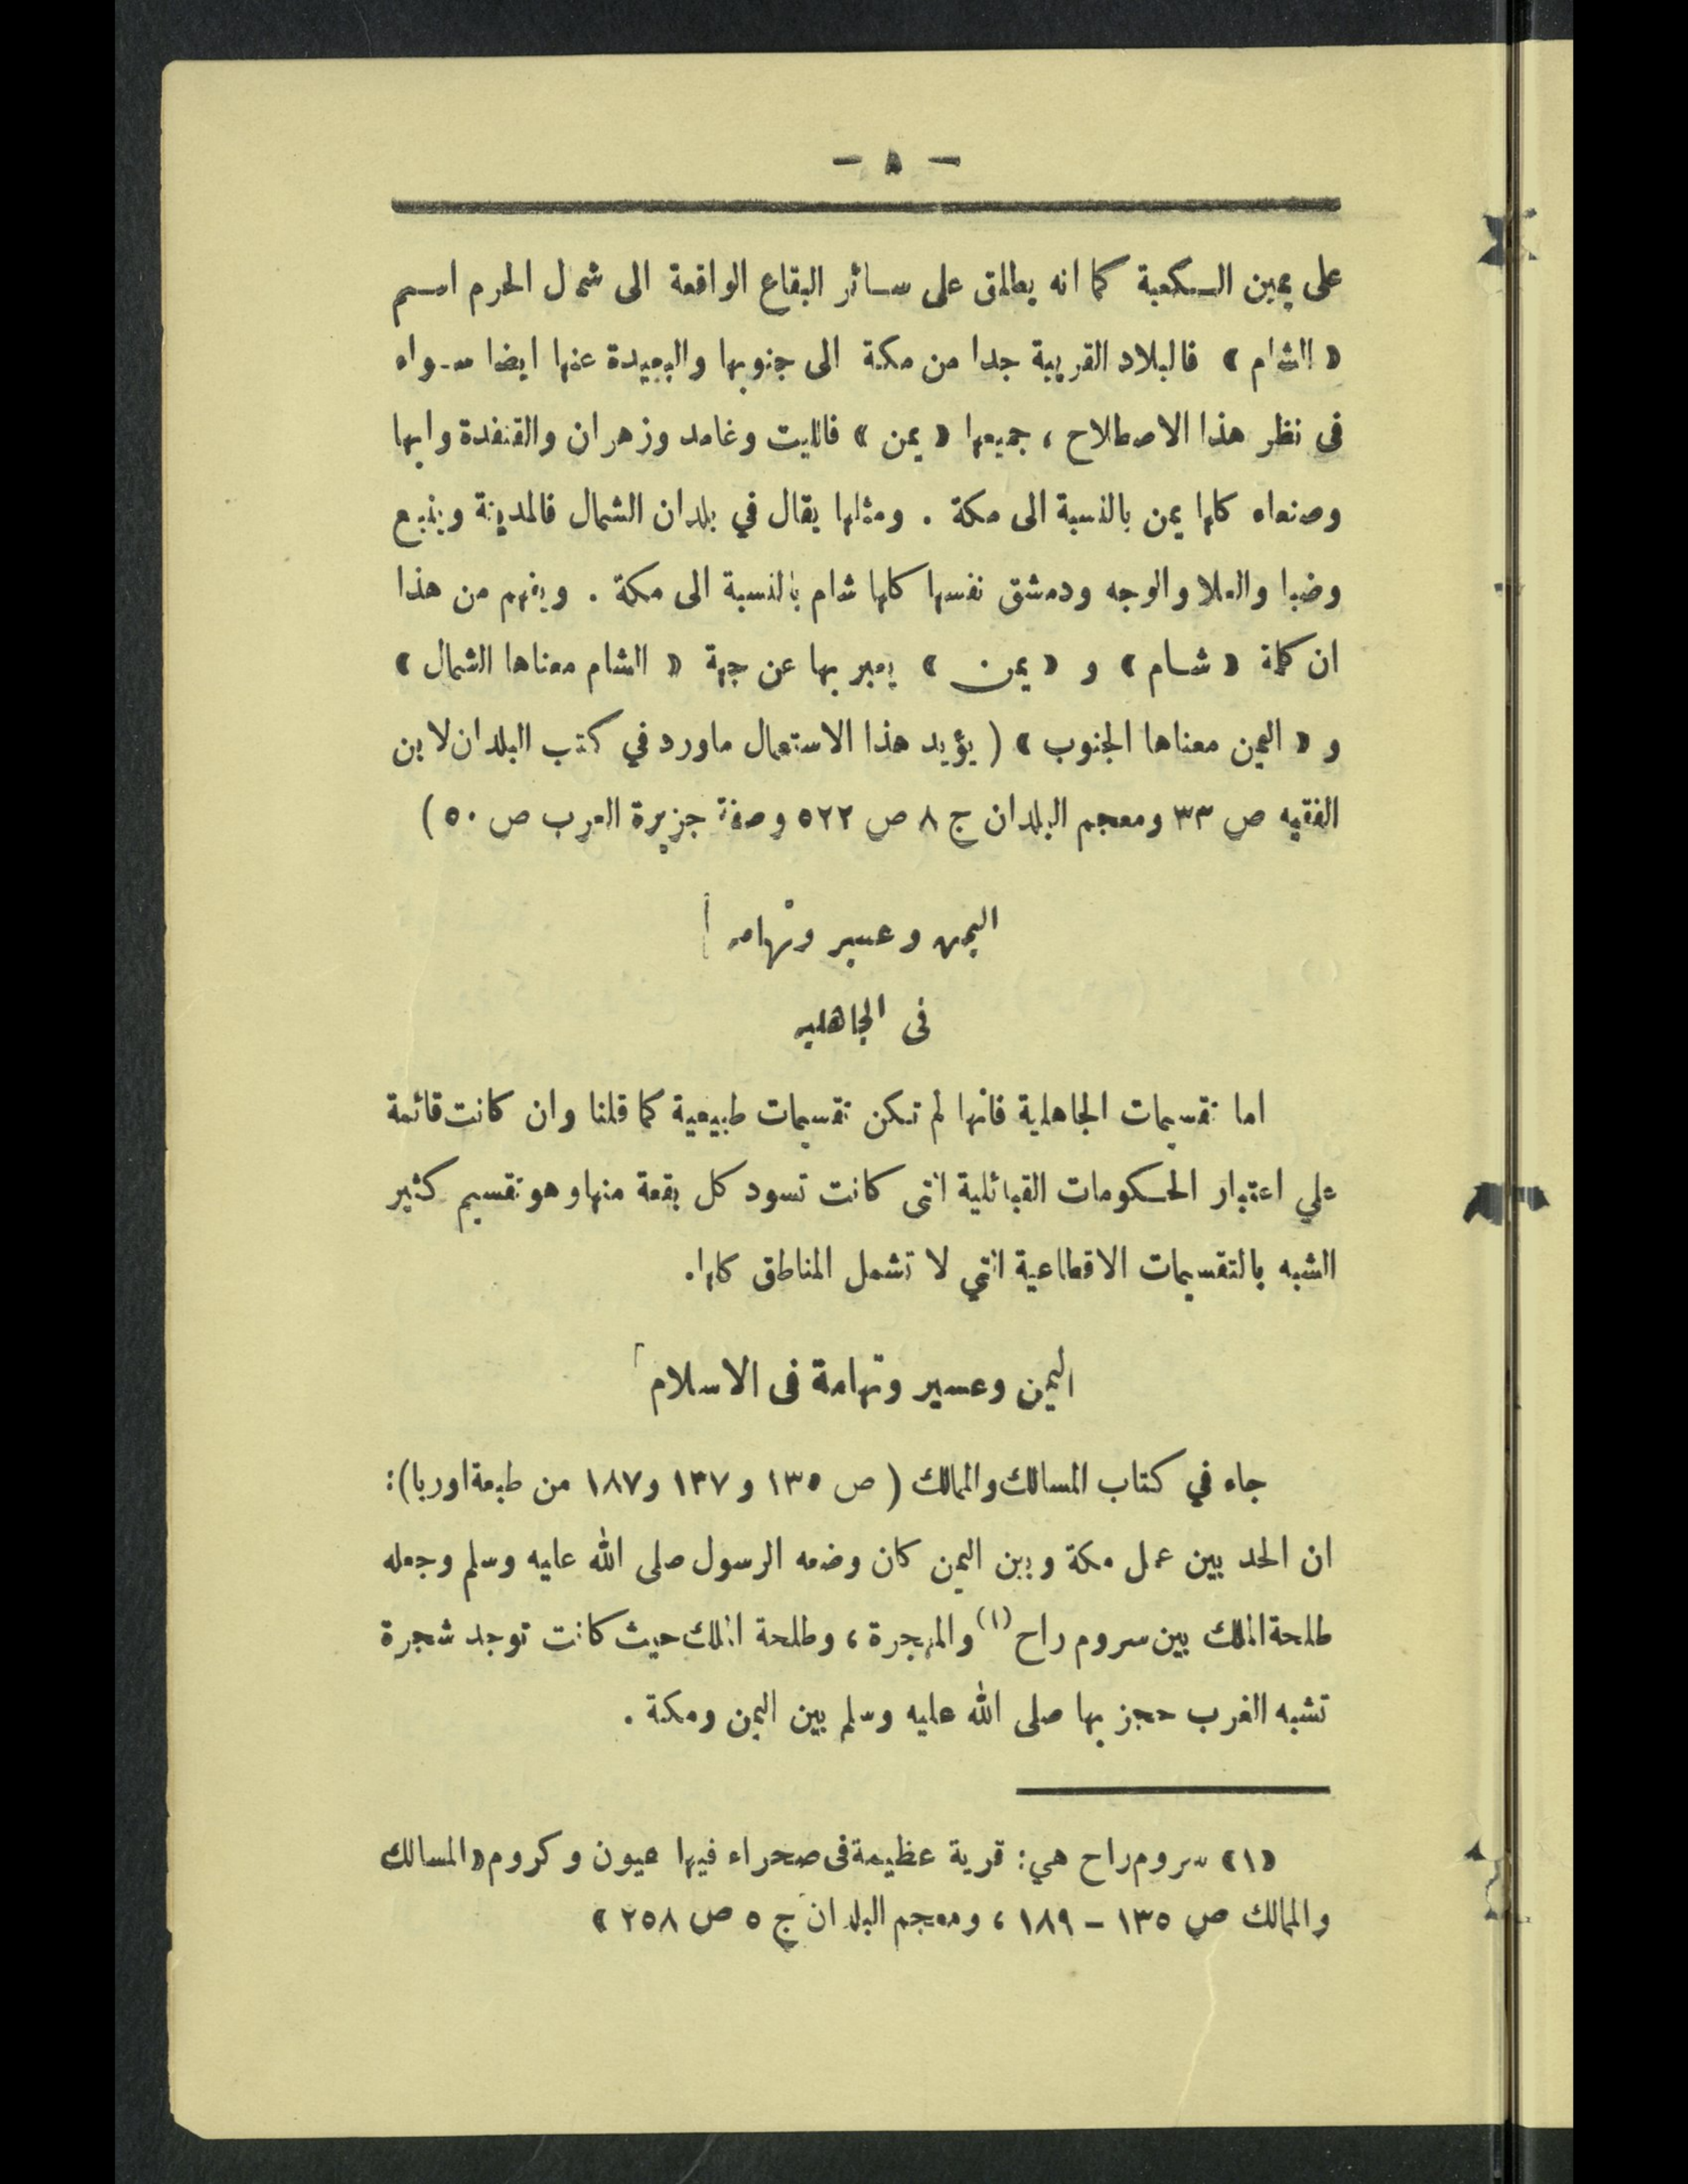 - ٥ -
على يمين الكعبة كما انه يطلق على سائر البقاع الواقعة الى شمال الحرم اسم
« الشام » فالبلاد القريبة جدا من مكة الى جنوبها والبعيدة عنها ايضا سواء
فى نظر هذا الاصطلاح ، جميعها « يمن » فالليت وغامد وزهران والقنفدة وابها
وصنعاء كلها يمن بالنسبة الى مكة . ومثلها يقال في بلدان الشمال فالمدينة وينبع
وضبا والعلا والوجه ودمشق نفسها كلها شام بالنسبة الى مكة . ويفهم من هذا
ان كلمة « شام » و « يمن » يعبر بها عن جهة « الشام معناها الشمال »
و « اليمن معناها الجنوب » ( يؤيد هذا الاستعمال ماورد في كتب البلدان لابن
الفقيه ص ٣٣ ومعجم البلدان ج ٨ ص ٥٢٢ وصفة جزيرة العرب ص ٥٠ )
اليمن وعسير وتهامة
فى الجاهلية
اما تقسيمات الجاهلية فانها لم تكن تقسيمات طبيعية كما قلنا وان كانت قائمة
علي اعتبار الحكومات القبائلية التى كانت تسود كل بقعة منها وهو تقسيم كثير
الشبه بالتقسيمات الاقطاعية التي لا تشمل المناطق كلها.
اليمن وعسير وتهامة فى الاسلام
جاء في كتاب المسالك والممالك ( ص ١٣٥ و ١٣٧ و١٨٧ من طبعة اوربا):
ان الحد بين عمل مكة وبين اليمن كان وضعه الرسول صلى الله عليه وسلم وجعله
طلحة الملك بين سروم راح (١) والمهجرة ، وطلحة الملك حيث كانت توجد شجرة
تشبه الغرب حجز بها صلى الله عليه وسلم بين اليمن ومكة .
«١» سروم راح هي: قرية عظيمة فى صحراء فيها عيون وكروم «المسالك
والممالك ص ١٣٥ – ١٨٩ ، ومعجم البلدان ج ٥ ص ٢٥٨ »